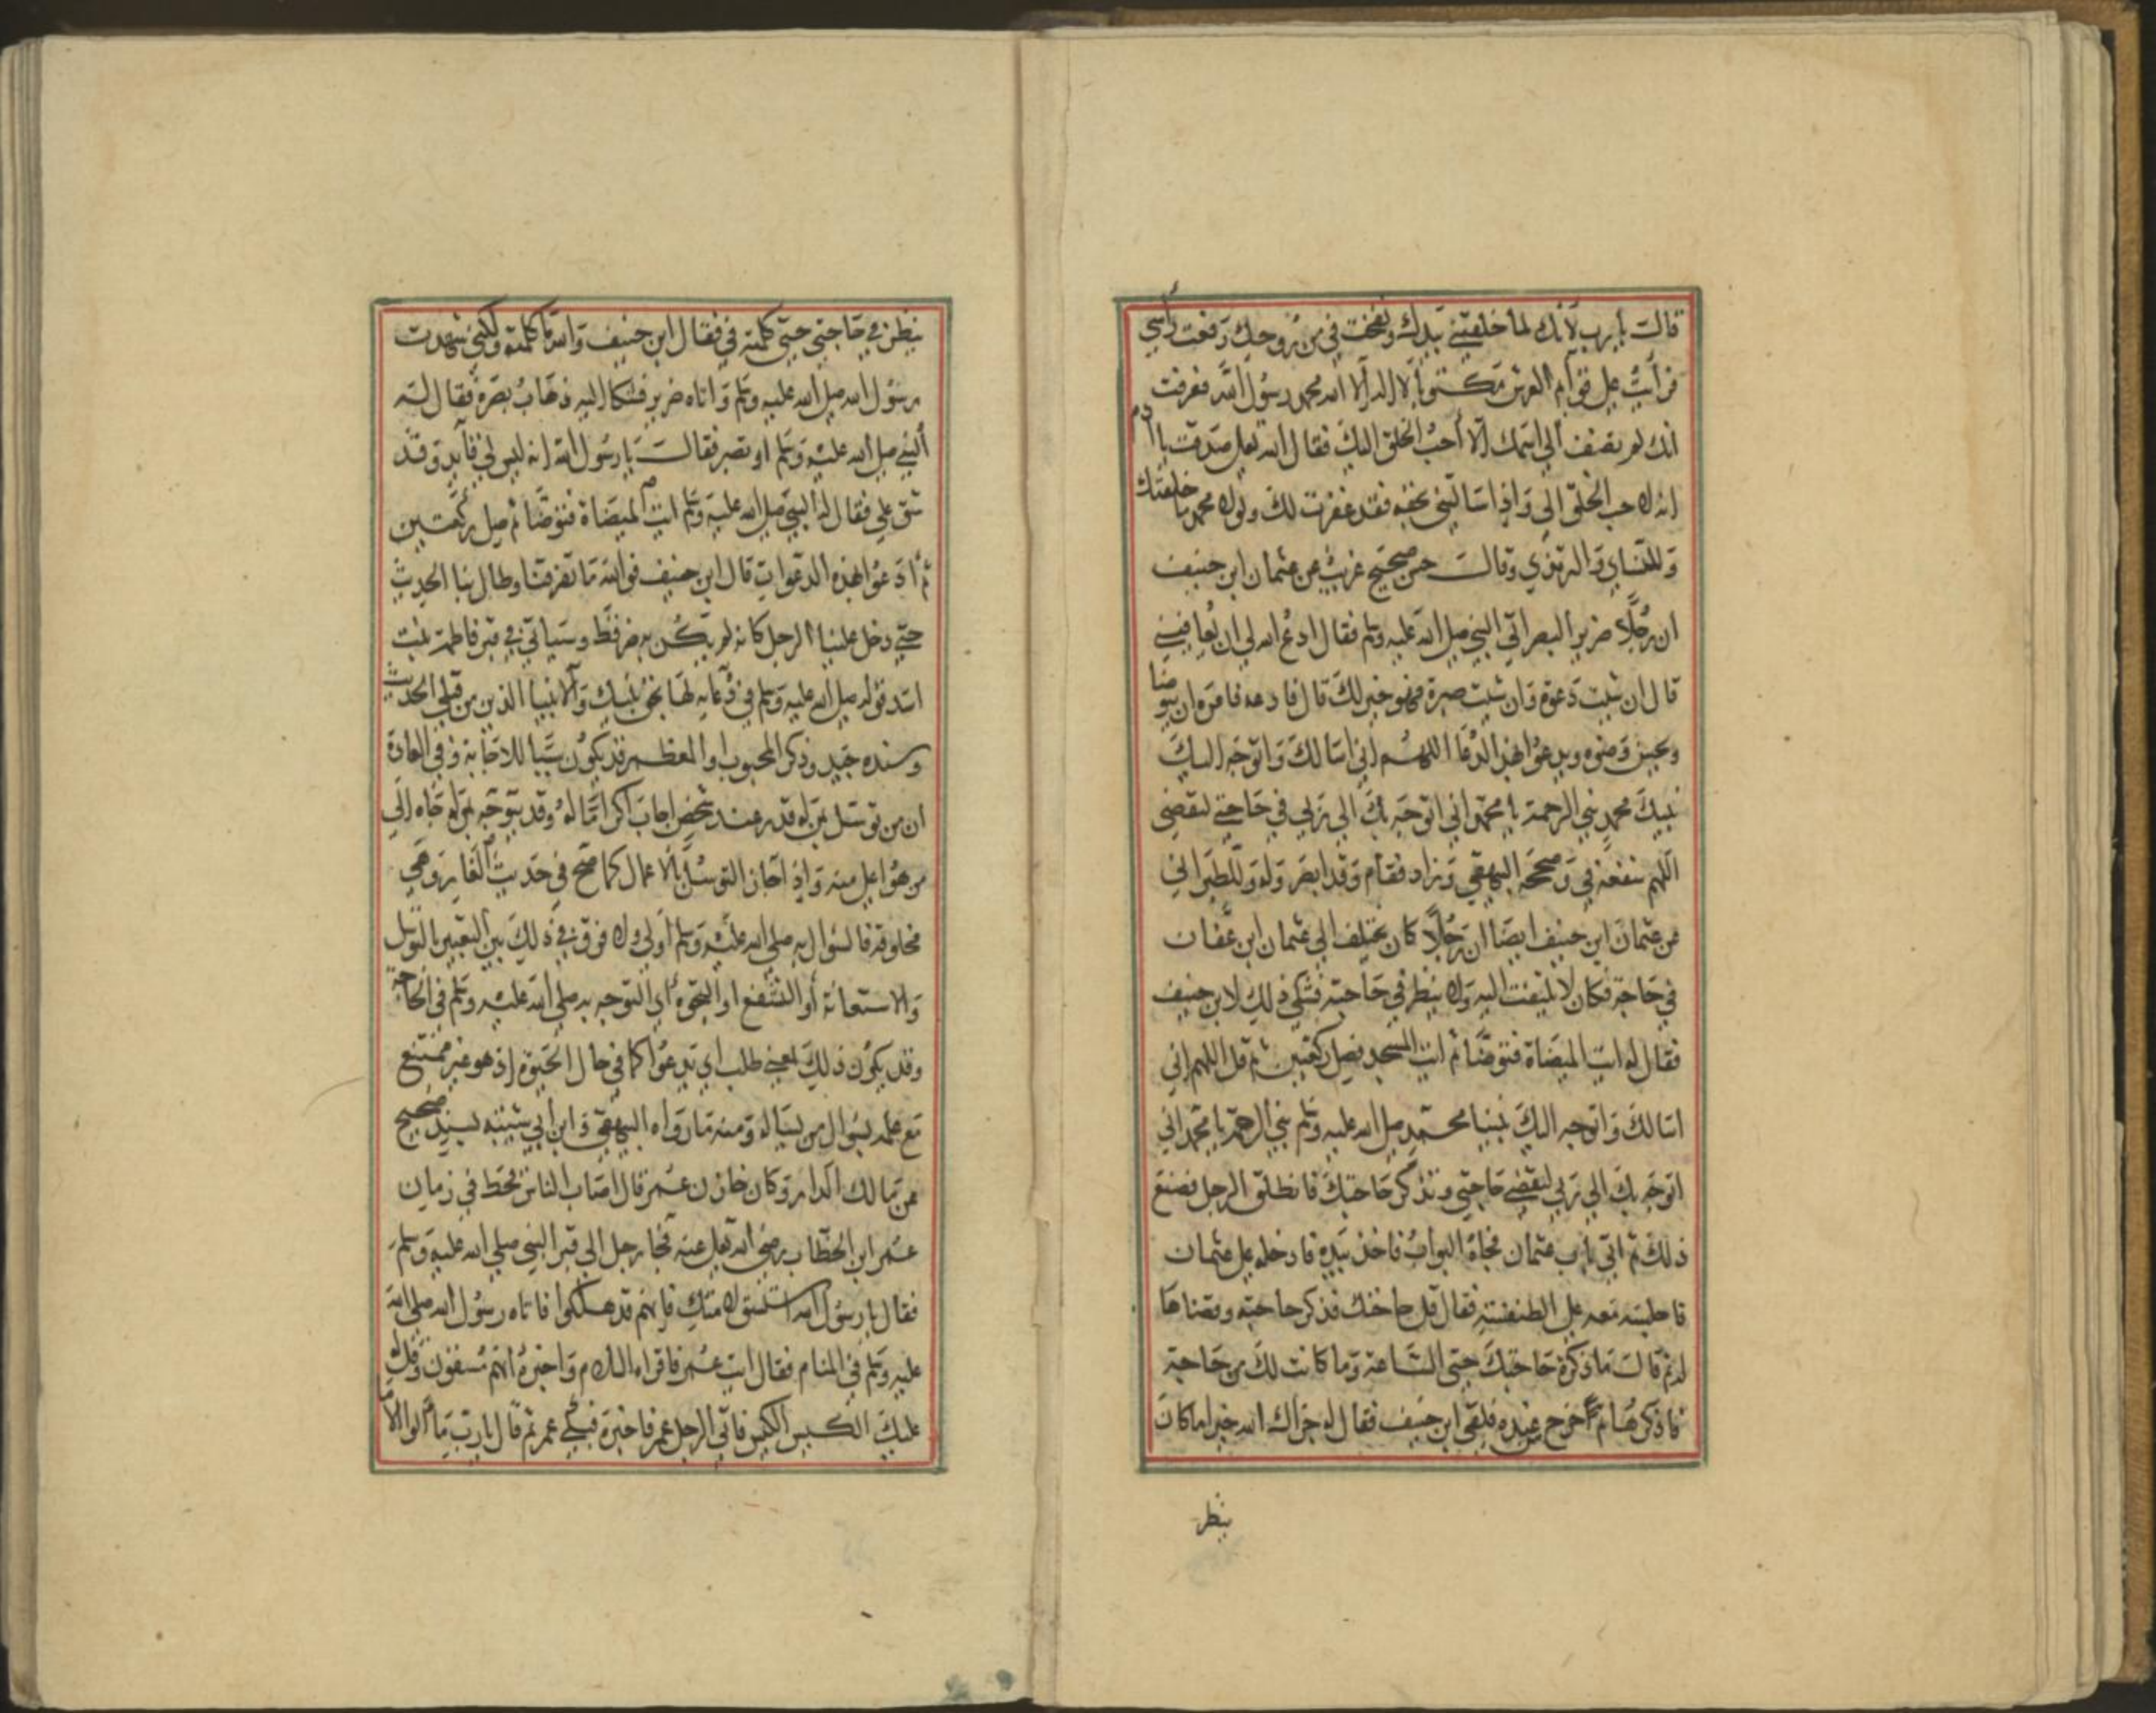 قالت يا رب لانك لما خلقتني بيدك ونفخت في من روحك رفعت راسي
فرأيت على قوائم العرش مكتوبا لا اله الا الله محمد رسول الله فعرفت
انك لم تضف الى اسمك الا أحب الخلق اليك فقال الله تعلى صدقت يا ادم
انه لاحب الخلق الي واذ اسالتني بحقه فقد غفرت لك ولولا محمد ما خلقتك
وللنساي والترمذي وقالت حسن صحيح غريب عن عثمان ابن حنيف
ان رجلا ضرير البصر اتى النبي صلى الله عليه وسلم فقال ادع الله لي ان يعافيني
قال ان شيت دعوة وان شيت صبرة فهو خير لك قال فادعه فامره ان يتوضا
ويحسن وضوه ويدعوا بهذا الدعا اللهم اني اسالك واتوجه اليك
نبيك محمد نبي الرحمة يا محمد اني اتوجه بك الى ربي في حاجتي لتقضى
اللهم شفعه في وصححه البيهقي وزاد فقام وقد ابصر وله وللطبراني
عن عثمان ابن حنيف ايضا ان رجلا كان يختلف الى عثمان ابن عفان
في حاجة فكان لا يلتفت اليه ولا ينظر في حاجته فشكى ذلك لابن حنيف
فقال له ايت الميضاة فتوضا ثم ايت المسجد فصل ركعتين ثم قل اللهم اني
اسالك واتوجه اليك بنبينا محمد صلى الله عليه وسلم نبي الرحمة يا محمد اني
اتوجه بك الى ربي لتقضي حاجتي وتذكر حاجتك فانطلق الرجل فصنع
ذلك ثم اتى باب عثمان فجاه البواب فاخذ بيده فادخله على عثمان
فاجلسه معه على الطنفسة فقال قل حاجتك فذكر حاجته وقضاها
له ثم قالت ما ذكرة حاجتك حتى الساعة وما كانت لك من حاجة
فاذكرها ثم خرج من عنده فلقى ابن حنيف فقال له جزاك الله خيرا ما كان
ينظر
ينظر في حاجتي حتى كلمته في فقال ابن حنيف والله ما كلمته ولكني شهدت
رسول الله صلى الله عليه وسلم واتاه ضرير فشكا اليه ذهاب بصره فقال له
النبي صلى الله عليه وسلم او تصبر فقالت يا رسول الله انه ليس لي قايد وقد
شق علي فقال له النبي صلى الله عليه وسلم ايت الميضاة فتوضا ثم صل ركعتين
ثم ادعوا بهذه الدعوات قال ابن حنيف فوالله ما تفرقنا وطال بنا الحديث
حتى دخل علينا الرجل كانه لم يكن به ضر قط وسياتي في قبر فاطمة بنت
اسد قوله صلى الله عليه وسلم في دعايه لها بحق نبيك والانبيا الذين من قبلي الحديث
وسنده جيد وذكر المحبوب او المعظم قد يكون سببا للاجابة وفي العادة
ان من توسل بمن له قدر عند شخص اجاب اكراما له وقد يتوجه بمن له جاه الى
من هو اعلى منه واذ اجاز التوسل بالاعمال كما صح في حديث الغار وهي
مخلوقة فالسوال به صلى الله عليه وسلم اولى ولا فرق في ذلك بين التعبير بالتوسل
والاستعانة او التشفع او التجوه اي التوجه به صلى الله عليه وسلم في الحاجة
وقد يكون ذلك بمعنى طلب اي يدعوا كما في حال الحيوة اذ هو غير ممتنع
مع علمه بسوال من يساله ومنه ما رواه البيهقي وابن ابي شيبه بسند صحيح
عن مالك الدار وكان خازن عمر قال اصاب الناس قحط في زمان
عمر ابن الخطاب رضى الله تعلى عنه فجا رجل الى قبر النبي صلى الله عليه وسلم
فقال يا رسول الله استسق لامتك فانهم قد هلكوا فاتاه رسول الله صلى الله
عليه وسلم في المنام فقال ايت عمر فاقراه السلام واخبره انهم مسقون وقل له
عليك الكيس الكيس فاتى الرجل عمر فاخبره فبكى عمر ثم قال يا رب ما الوا الاما